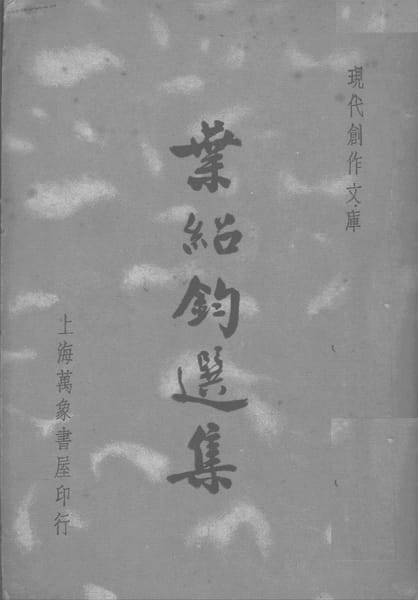 現代創作文庫
葉紹鈞選集
上海萬象書屋印行